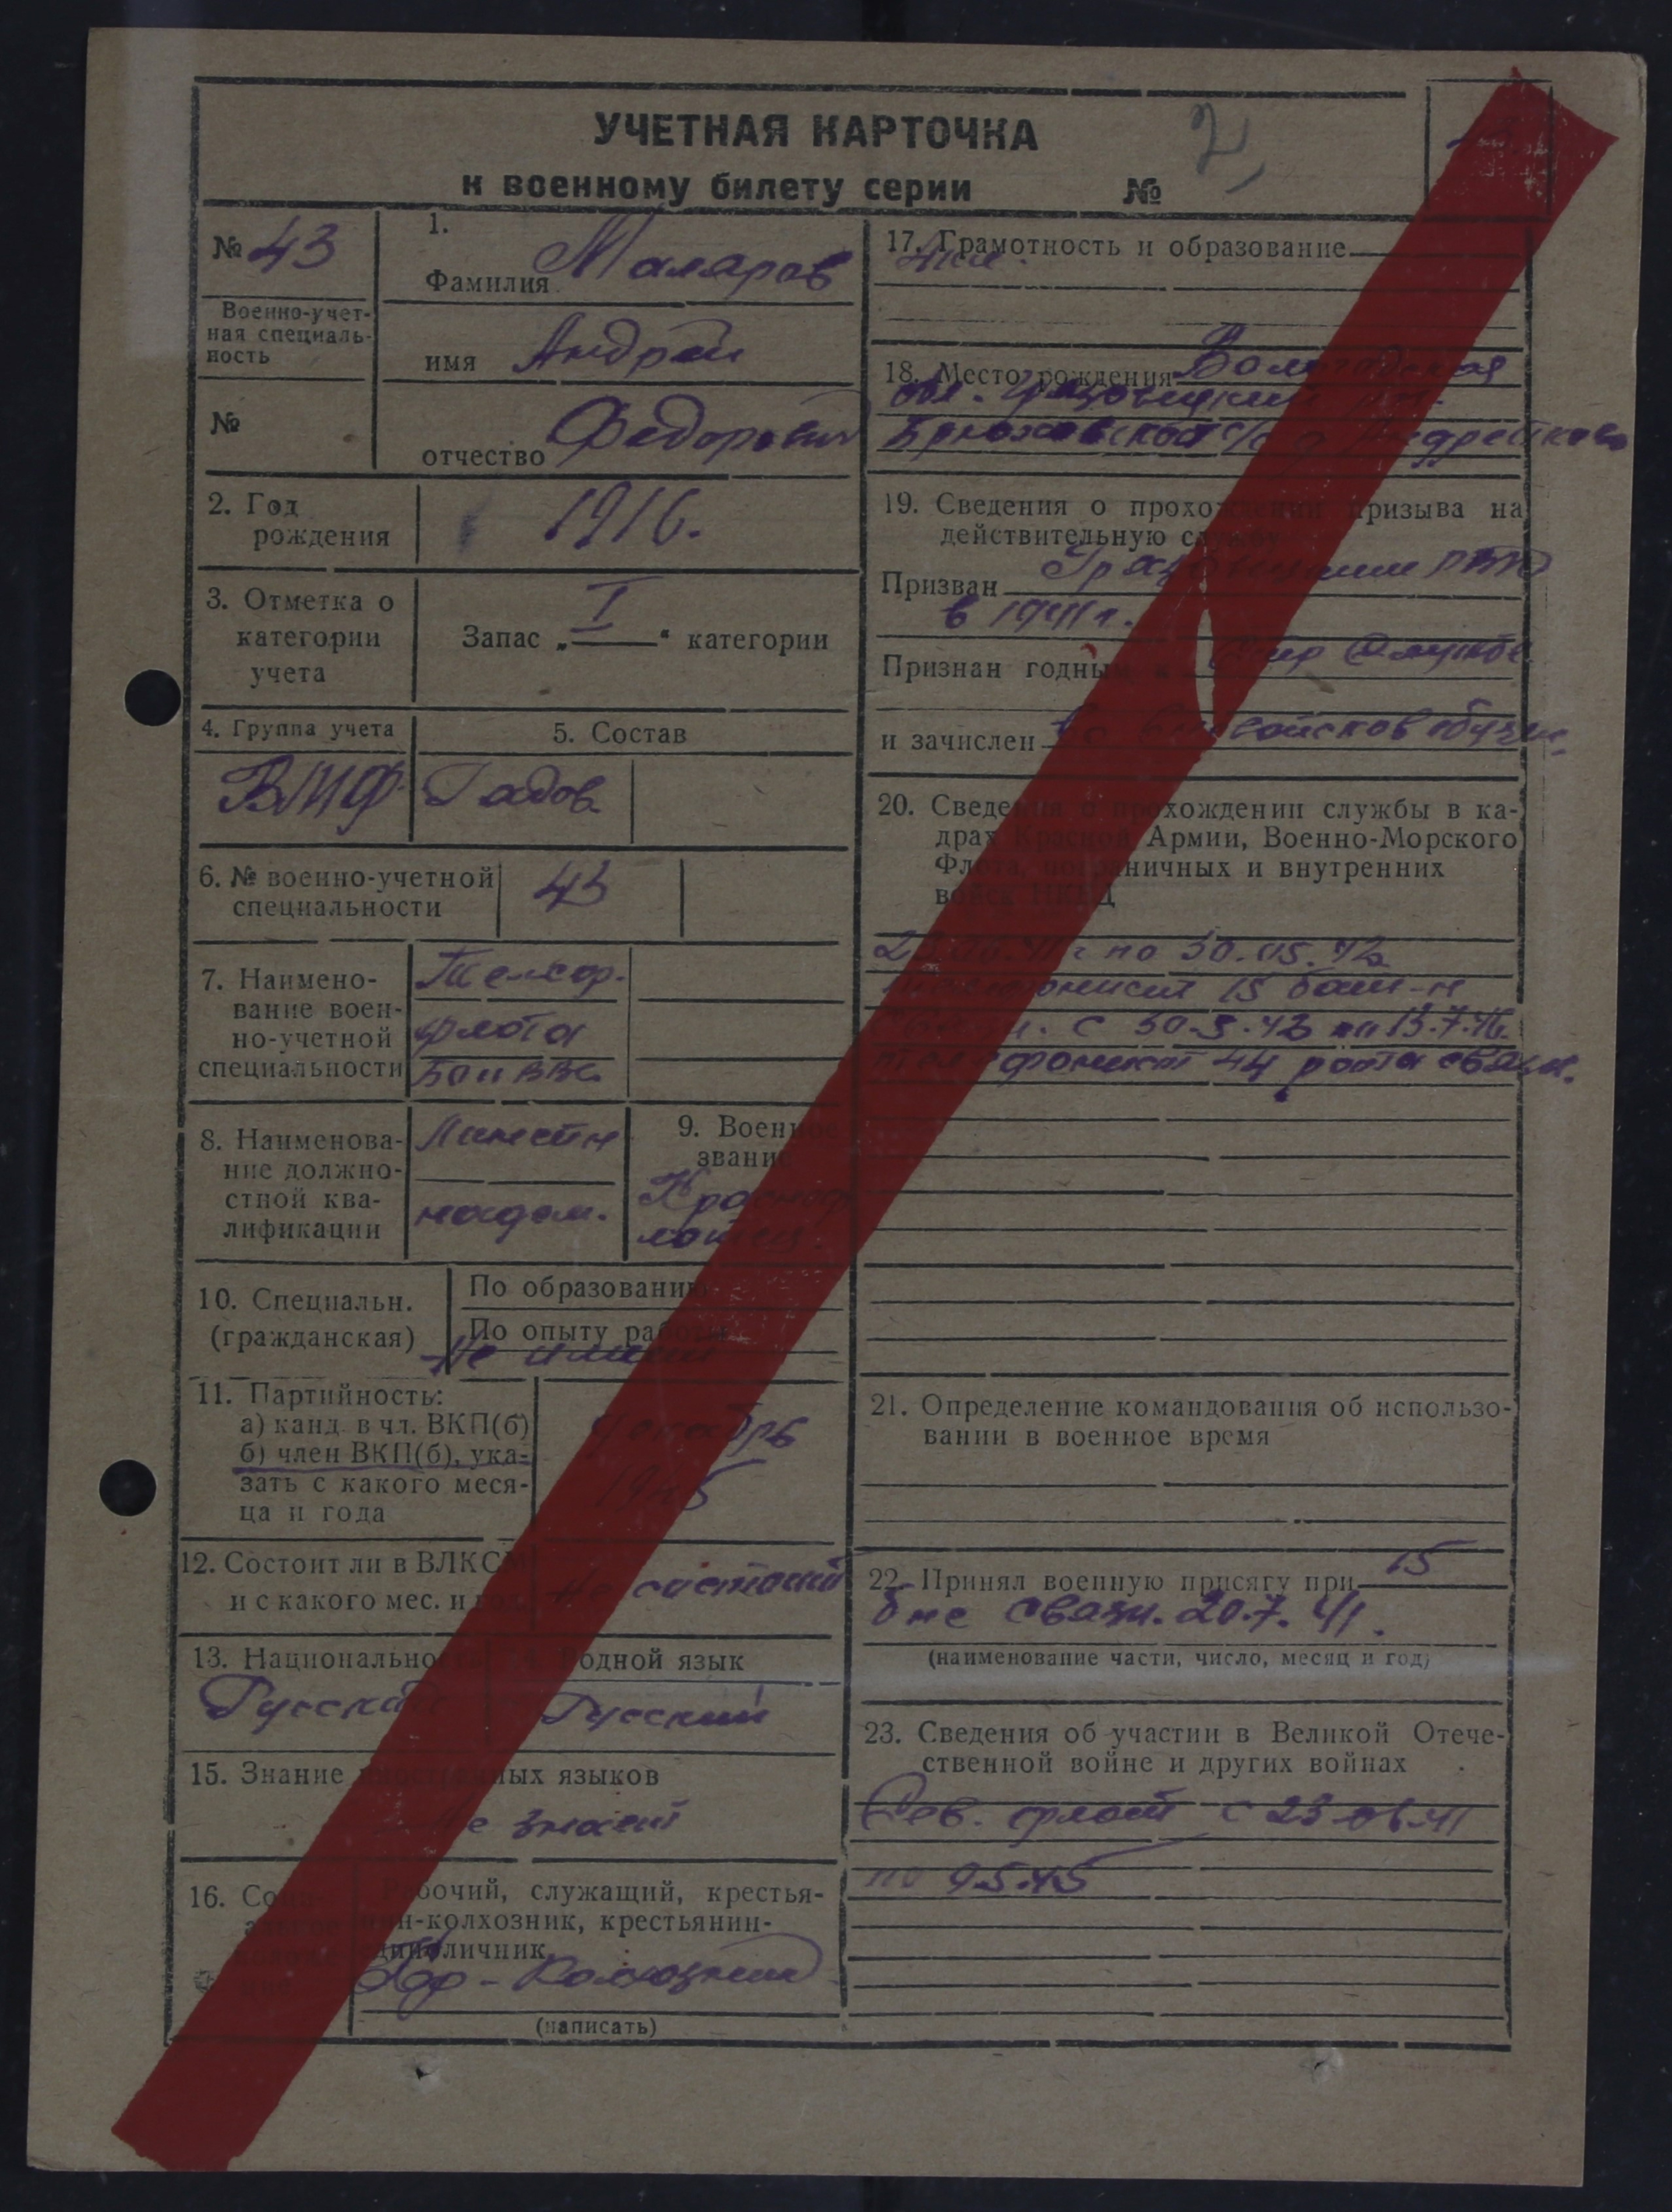 УЧЕТНАЯ КАРТОЧКА
к военному билету серии №
№ 43
Военно-учет-
ная специаль-
ность
№
1.
Фамилия Маляров
имя Андрей
отчество Федорович
2. Год
рождения
1916.
3. Отметка о
категории
учета
Запас „I“ категории
4. Группа учета
ВМФ
5. Состав
Рядов.
6. № военно-учетной
специальности
43
7. Наимено-
вание воен-
но-учетной
специальности
флота
8. Наименова-
ние должно-
стной ква-
лификации
надсм.
9. Военное
звание
10. Специальн.
(гражданская)
По образованию
По опыту работы
Не имеет
11. Партийность:
а) канд. в чл. ВКП(б)
б) член ВКП(б), ука-
зать с какого меся-
ца и года
1945
12. Состоит ли в ВЛКСМ
и с какого мес. и год.
Не состоит
13. Национальность
Русский
14. Родной язык
Русский
15. Знание иностранных языков
Не знает
16. Соци-
альное
положе-
ние
Рабочий, служащий, крестья-
нин-колхозник, крестьянин-
единоличник
(написать)
17. Грамотность и образование
4 кл.
18. Место рождения Вологодская
обл. Грязовецкий
с/с д Андрейково
19. Сведения о прохождении призыва на
действительную службу
Призван Грязовецким РВК
в 1941 г.
Признан годным к службе
и зачислен
20. Сведения о прохождении службы в ка-
драх Красной Армии, Военно-Морского
Флота, пограничных и внутренних
войск НКВД
по 30.05.43
телефонист 15 бат-н
с 30.5.43 по 13.7.46.
телефонист 44 рота связи.
21. Определение командования об использо-
вании в военное время
22. Принял военную присягу при 15
б-не связи. 20.7.41.
(наименование части, число, месяц и год)
23. Сведения об участии в Великой Отече-
ственной войне и других войнах
Сев. флот с 23.06.41
по 9.5.45